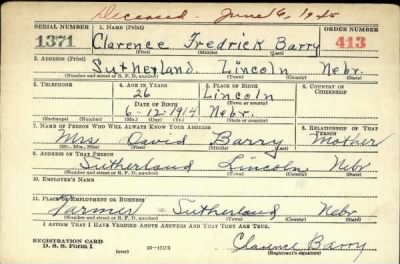 Deceased - June 16, 1945
SERIAL NUMBER 1. NAME (Print) ORDER NUMBER
1371 Clarence Fredrick Barry 413
(First) (Middle) (Last)
2. ADDRESS (Print)
Sutherland Lincoln Nebr.
(Number and street or R. F. D. number) (Town) (County) (State)
3. TELEPHONE 4. AGE IN YEARS 5. PLACE OF BIRTH 6. COUNTRY OF CITIZENSHIP
26 Lincoln
DATE OF BIRTH (Town or county)
6-12-1914 Nebr.
(Exchange) (Number) (Mo.) (Day) (Yr.) (State or country)
7. NAME OF PERSON WHO WILL ALWAYS KNOW YOUR ADDRESS 8. RELATIONSHIP OF THAT PERSON
Mrs David Barry Mother
(Mr., Mrs., Miss) (First) (Middle) (Last)
9. ADDRESS OF THAT PERSON
Sutherland Lincoln Nebr
(Number and street or R. F. D. number) (Town) (County) (State)
10. EMPLOYER'S NAME
11. PLACE OF EMPLOYMENT OR BUSINESS
Farmer Sutherland Nebr
(Number and street or R. F. D. number) (Town) (County) (State)
I AFFIRM THAT I HAVE VERIFIED ABOVE ANSWERS AND THAT THEY ARE TRUE.
REGISTRATION CARD
D. S. S. Form 1 (over) 16-17173 Clarence Barry
(Registrant's signature)